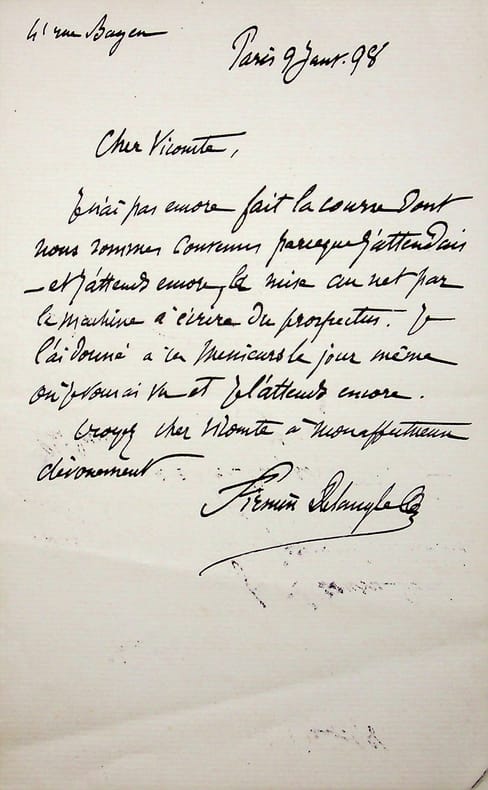 41 rue Bayen
Paris 9 Janv. 98
Cher Vicomte,
Je n'ai pas encore fait la course dont
nous sommes convenus parceque j'attendais
– et j'attends encore, la mise au net par
la machine à écrire du prospectus. Je
l'ai donné à ces Messieurs le jour même
où je vous ai vu et je l'attends encore.
Croyez cher Vicomte à mon affectueux
dévouement
Firmin Delangle